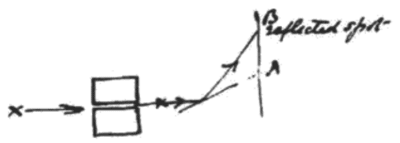 B
reflected spot
A